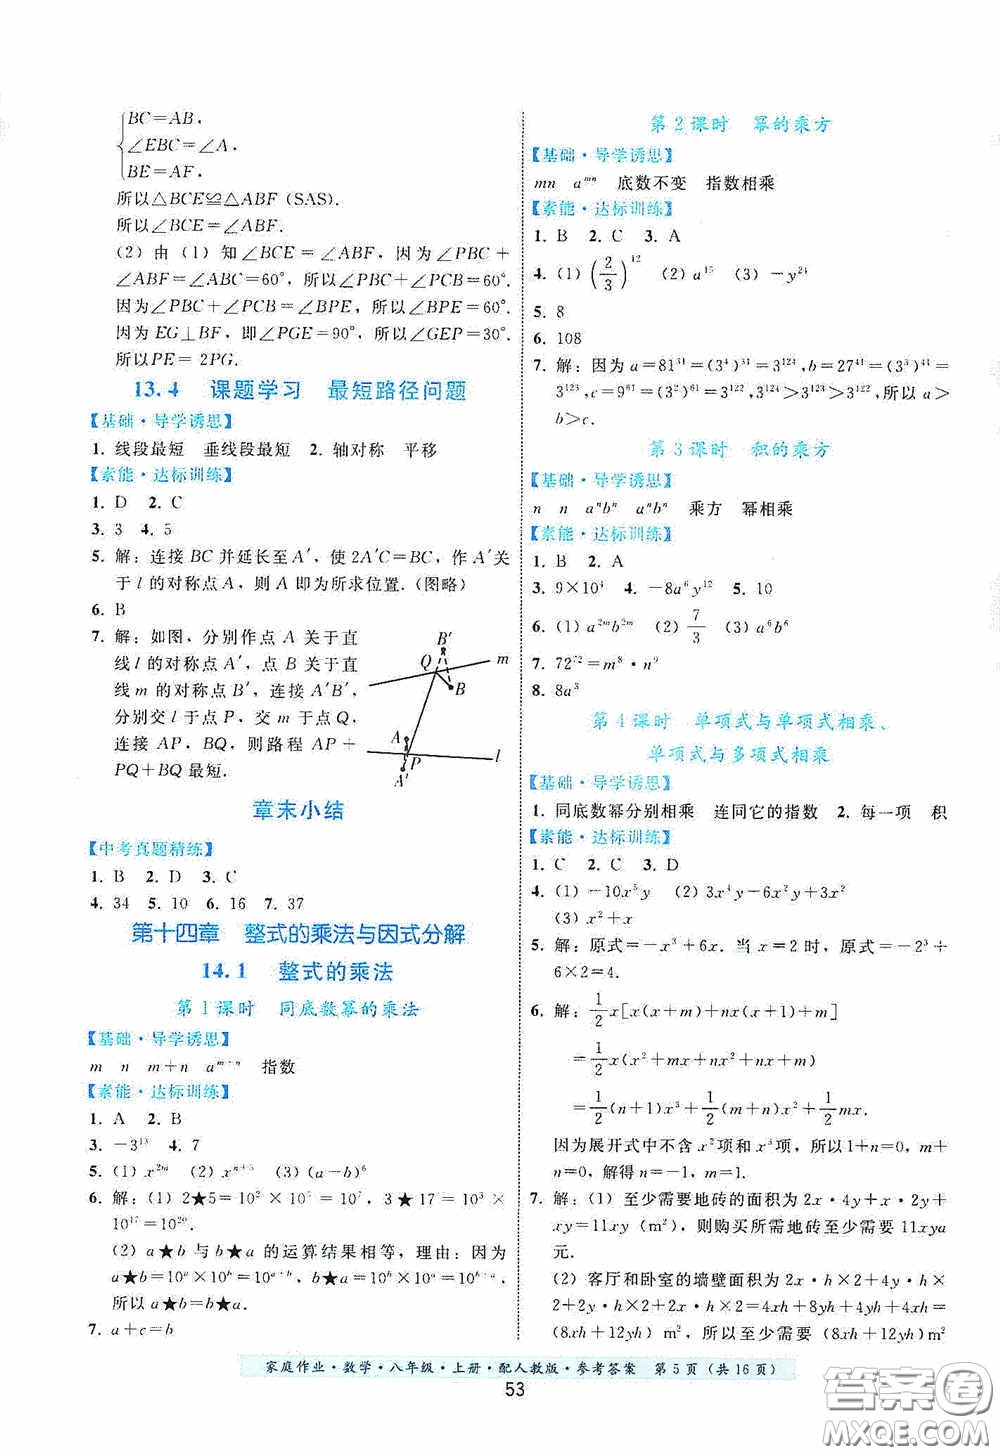 BC=AB,
∠EBC=∠A.
BE=AF.
所以△BCE≌△ABF (SAS).
所以∠BCE=∠ABF.
(2) 由 (1) 知∠BCE=∠ABF, 因为∠PBC+
∠ABF=∠ABC=60°, 所以∠PBC+∠PCB=60°.
因为∠PBC+∠PCB=∠BPE, 所以∠BPE=60°.
因为 EG⊥BF, 即∠PGE=90°, 所以∠GEP=30°.
所以PE=2PG.
13.4 课题学习 最短路径问题
【基础·导学诱思】
1. 线段最短 垂线段最短 2. 轴对称 平移
【素能·达标训练】
1. D 2. C
3. 3 4. 5
5. 解: 连接 BC 并延长至 A′, 使 2A′C=BC, 作 A′关
于 l 的对称点 A, 则 A 即为所求位置. (图略)
6. B
7. 解: 如图, 分别作点 A 关于直
线 l 的对称点 A′, 点 B 关于直
线 m 的对称点 B′, 连接 A′B′,
分别交 l 于点 P, 交 m 于点 Q,
连接 AP, BQ, 则路程 AP+
PQ+BQ 最短.
B′
Q
m
B
A
P
l
A′
章末小结
【中考真题精练】
1. B 2. D 3. C
4. 34 5. 10 6. 16 7. 37
第十四章 整式的乘法与因式分解
14.1 整式的乘法
第 1 课时 同底数幂的乘法
【基础·导学诱思】
m n m+n a^{m+n} 指数
【素能·达标训练】
1. A 2. B
3. −3^{13} 4. 7
5. (1) x^{2m} (2) x^{n+5} (3) (a−b)^6
6. 解: (1) 2★5=10²×10⁵=10⁷, 3★17=10³×
10^{17}=10^{20}.
(2) a★b 与 b★a 的运算结果相等, 理由: 因为
a★b=10^a×10^b=10^{a+b}, b★a=10^b×10^a=10^{a+b},
所以 a★b=b★a.
7. a+c=b
第 2 课时 幂的乘方
【基础·导学诱思】
mn a^{mn} 底数不变 指数相乘
【素能·达标训练】
1. B 2. C 3. A
4. (1) (2/3)^{12} (2) a^{15} (3) −y^{24}
5. 8
6. 108
7. 解: 因为 a=81^{31}=(3⁴)^{31}=3^{124}, b=27^{41}=(3³)^{41}=
3^{123}, c=9^{61}=(3²)^{61}=3^{122}, 3^{124}>3^{123}>3^{122}, 所以 a>
b>c.
第 3 课时 积的乘方
【基础·导学诱思】
n n a^n b^n a^n b^n 乘方 幂相乘
【素能·达标训练】
1. B 2. A
3. 9×10⁴ 4. −8a⁶y^{12} 5. 10
6. (1) a^{2m}b^{2m} (2) 7/3 (3) a⁶b⁶
7. 72^{72}=m⁸·n⁹
8. 8a³
第 4 课时 单项式与单项式相乘、
单项式与多项式相乘
【基础·导学诱思】
1. 同底数幂分别相乘 连同它的指数 2. 每一项 积
【素能·达标训练】
1. C 2. C 3. D
4. (1) −10x⁵y (2) 3x⁴y−6x²y+3x²
(3) x²+x
5. 解: 原式=−x³+6x. 当 x=2 时, 原式=−2³+
6×2=4.
6. 解: 1/2 x[x(x+m)+nx(x+1)+m]
=1/2 x(x²+mx+nx²+nx+m)
=1/2(n+1)x³+1/2(m+n)x²+1/2 mx.
因为展开式中不含 x²项和 x³项, 所以 1+n=0, m+
n=0, 解得 n=−1, m=1.
7. 解: (1) 至少需要地砖的面积为 2x·4y+x·2y+
xy=11xy (m²), 则购买所需地砖至少需要 11xya
元.
(2) 客厅和卧室的墙壁面积为 2x·h×2+4y·h
×2+2x·h×2+2y·h×2=4xh+8yh+4xh+4yh=
(8xh+12yh) m², 则至少需要(8xh+12yh)×b=
(8xh+12yh)b 元.
家庭作业·数学·八年级·上册·配人教版·参考答案 第 5 页 (共 16 页)
53
答案圈
MXQE.COM